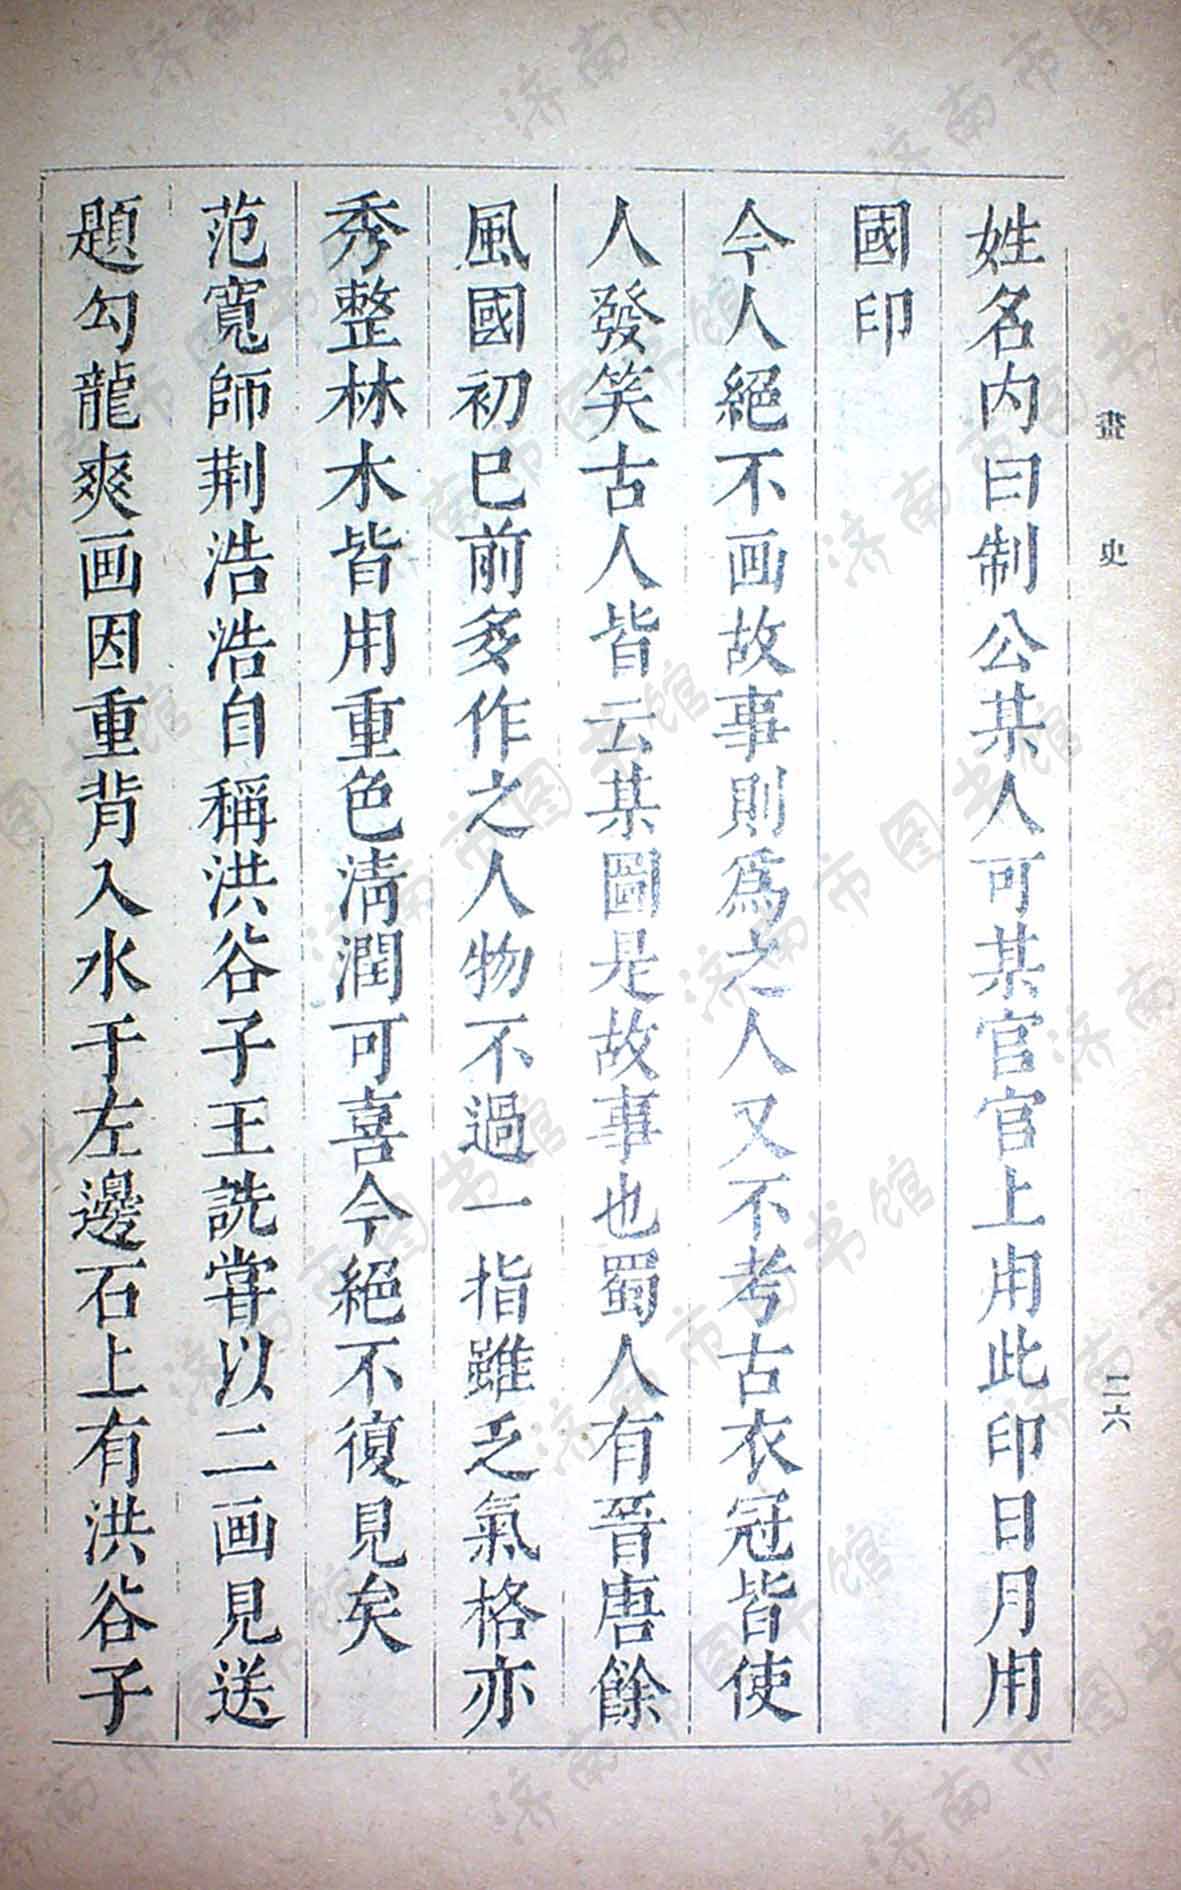 畫史
二六
姓名內曰制公某人可某官官上用此印日月用
國印
今人絕不画故事則爲之人又不考古衣冠皆使
人發笑古人皆云某圖是故事也蜀人有晉唐餘
風國初巳前多作之人物不過一指雖乏氣格亦
秀整林木皆用重色清潤可喜今絕不復見矣
范寬師荆浩浩自稱洪谷子王詵嘗以二画見送
題勾龍爽画因重背入水于左邊石上有洪谷子
济南市图书馆